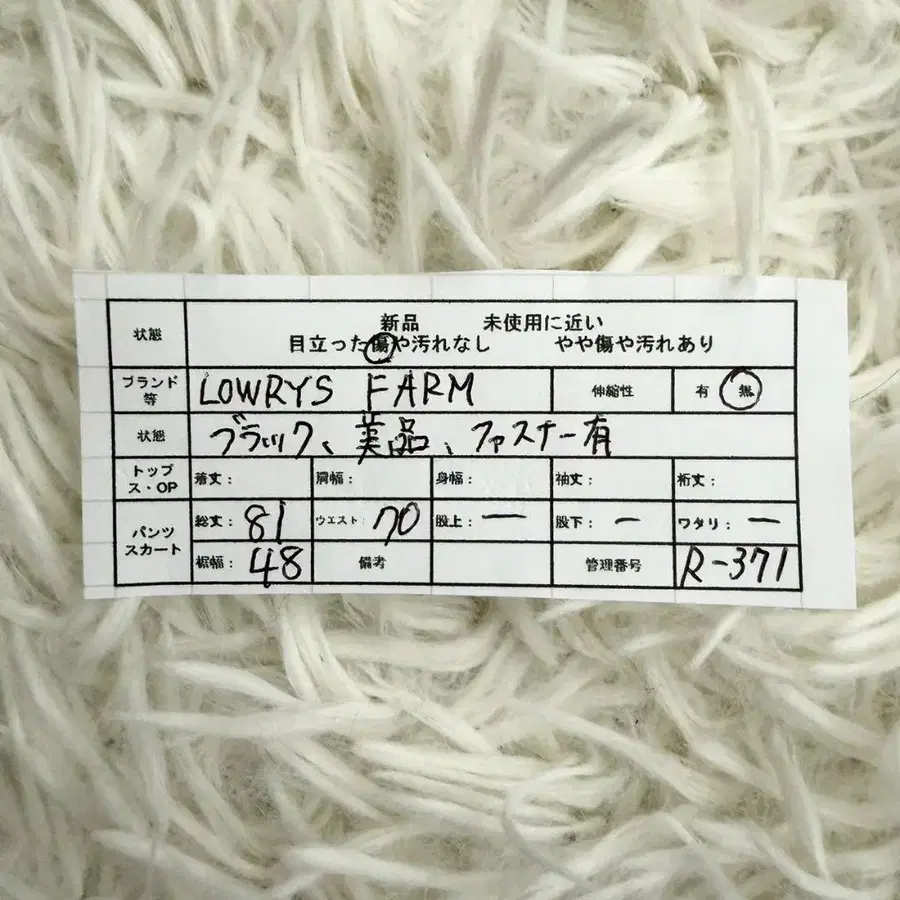 状態 新品 未使用に近い
目立った傷や汚れなし やや傷や汚れあり
ブランド等 LOWRYS FARM 伸縮性 有 無
状態 ブラック、美品、ファスナー有
トップス・OP 着丈: 肩幅: 身幅: 袖丈: 裄丈:
パンツスカート 総丈: 81 ウエスト: 70 股上: ー 股下: ー ワタリ: ー
裾幅: 48 備考 管理番号 R-371